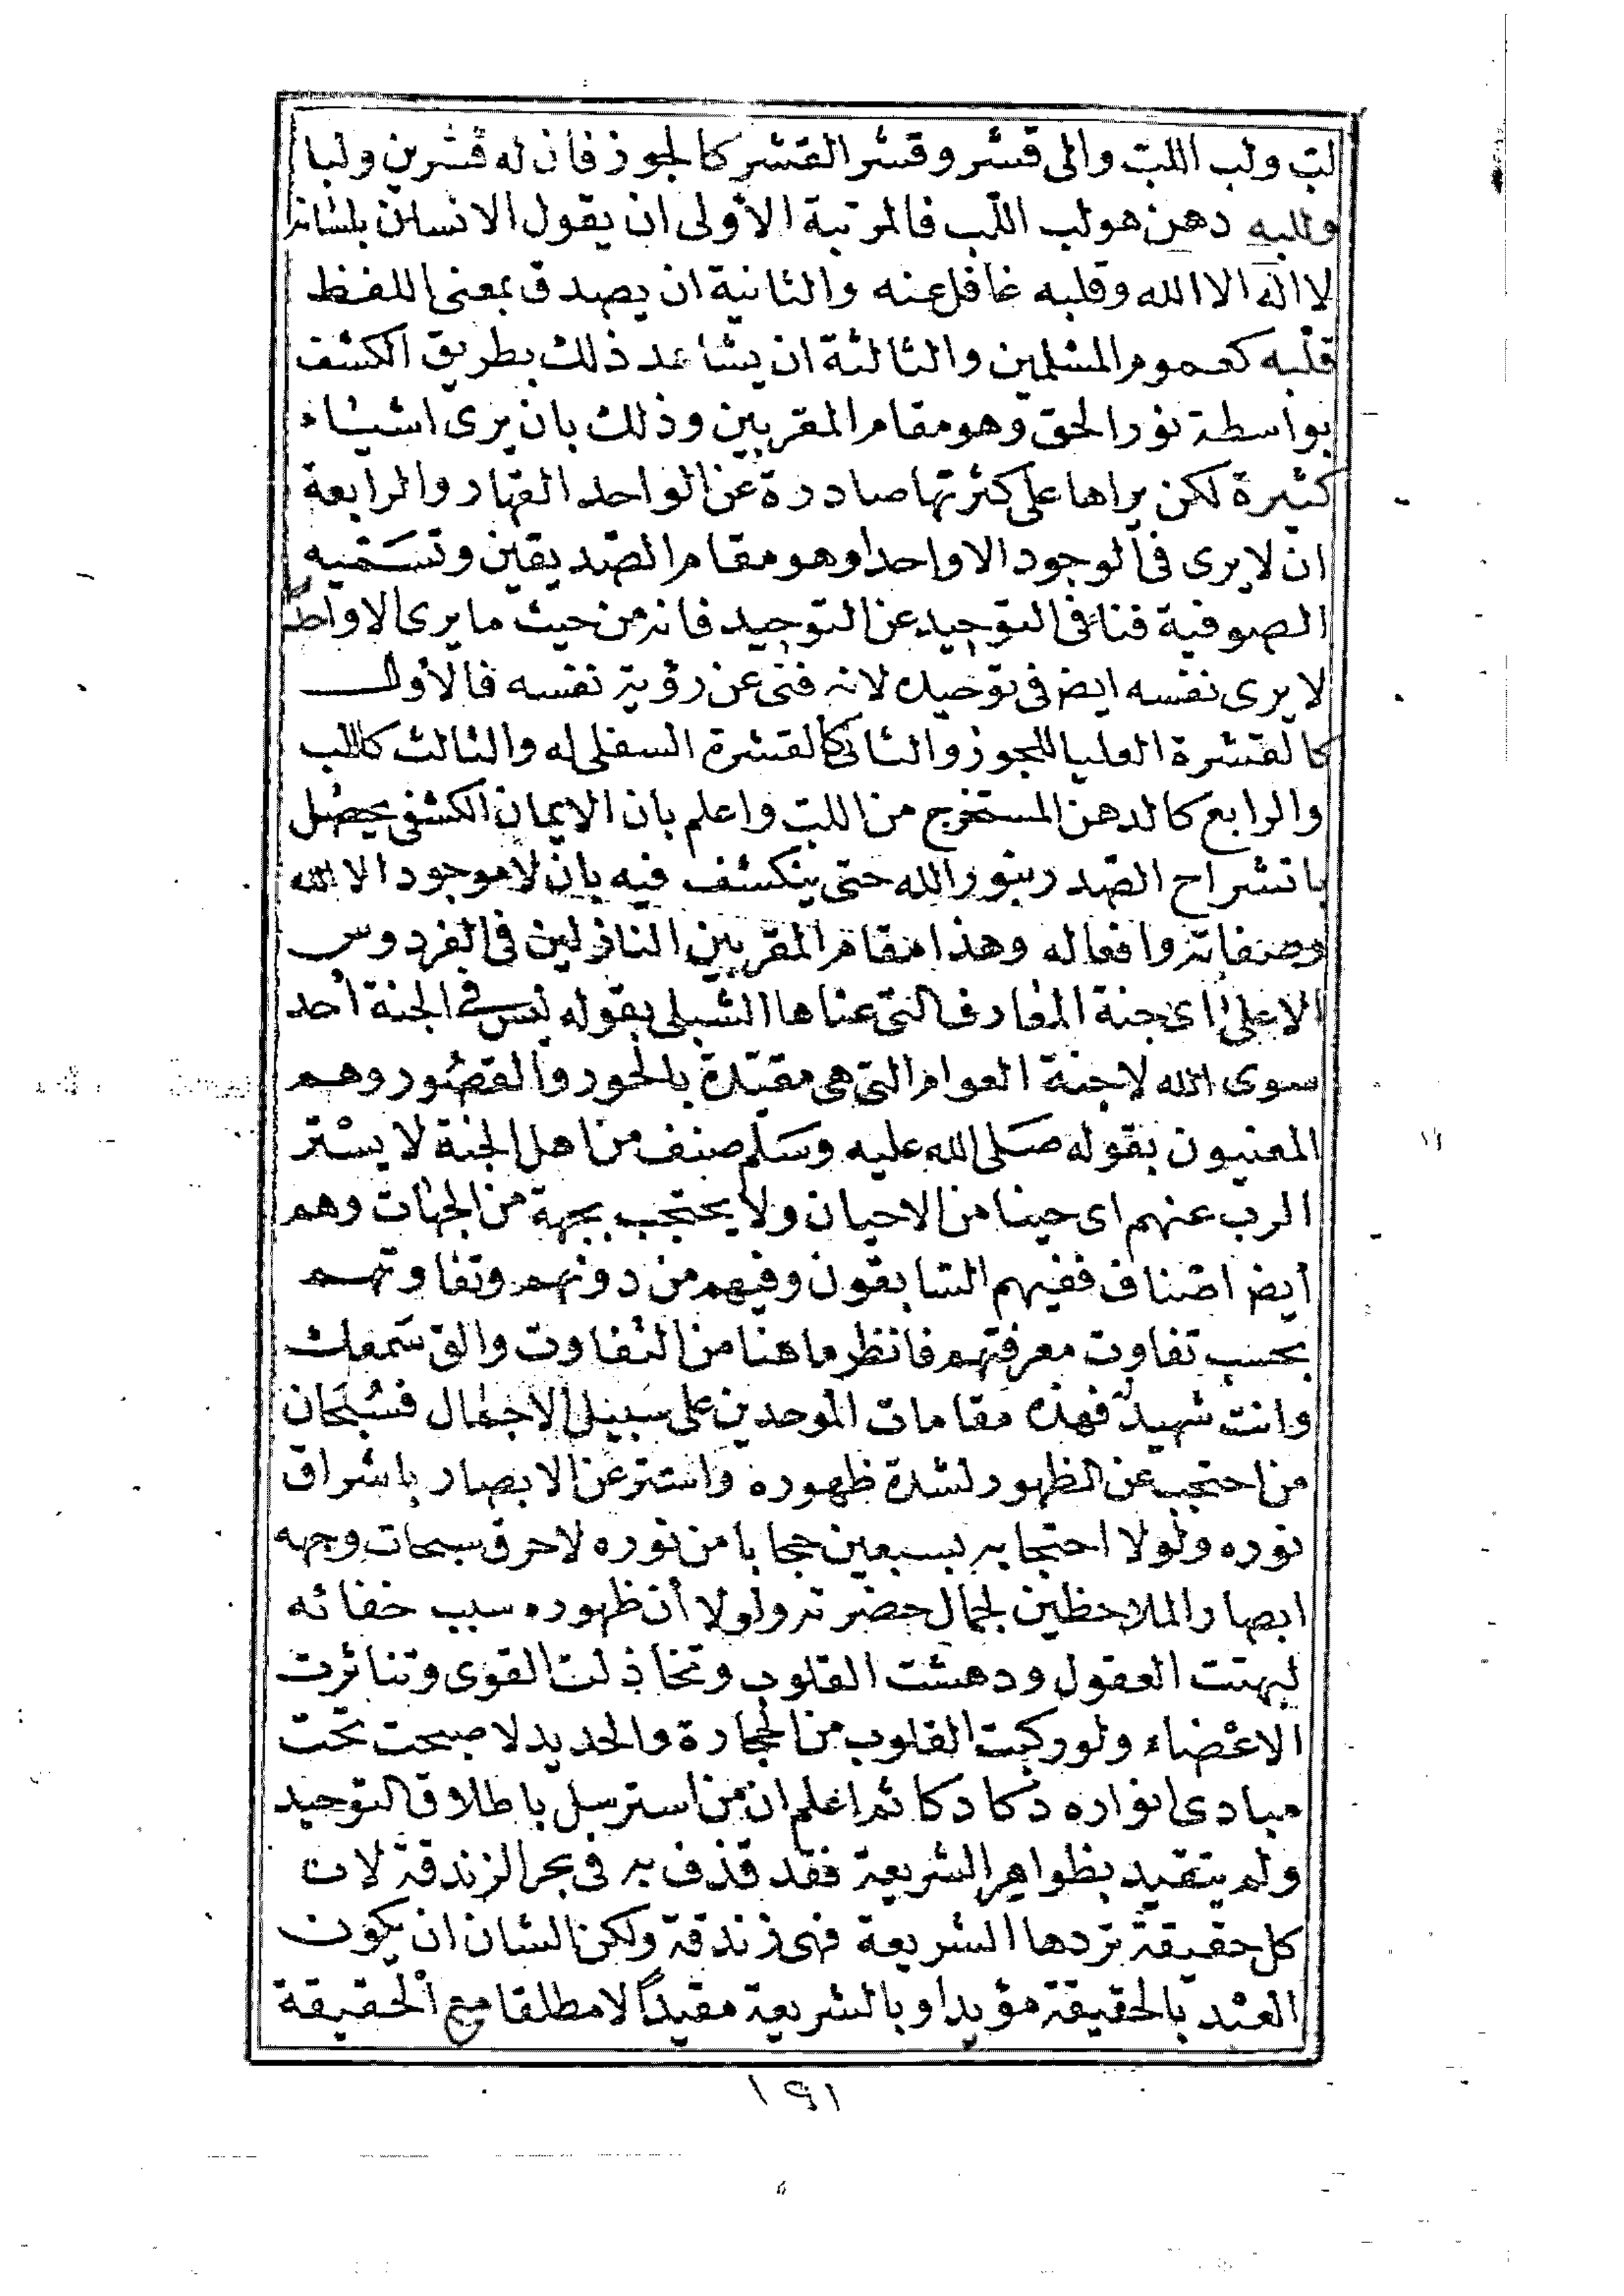 لب ولب اللب والى قشر وقشر القشر كالجوز فان له قشرين ولبا
وللبه دهن هو لب اللب فالمرتبة الأولى ان يقول الانسان بلسانه
لا اله الا الله وقلبه غافل عنه والثانية ان يصدق بمعنى اللفظ
قلبه كعموم المسلمين والثالثة ان يشاهد ذلك بطريق الكشف
بواسطة نور الحق وهو مقام المقربين وذلك بان يرى اشياء
كثيرة لكن يراها على كثرتها صادرة عن الواحد القهار والرابعة
ان لا يرى فى الوجود الا واحدا وهو مقام الصديقين وتسميه
الصوفية فناء فى التوحيد عن التوحيد فانه من حيث ما يرى الا واحدا
لا يرى نفسه ايض فى توحيده لانه فنى عن رؤية نفسه فالأول
كالقشرة العليا للجوز والثانى كالقشرة السفلى له والثالث كاللب
والرابع كالدهن المستخرج من اللب واعلم بان الايمان الكشفى يحصل
بانشراح الصدر بنور الله حتى ينكشف فيه بان لا موجود الا الله
وصفاته وافعاله وهذا مقام المقربين النازلين فى الفردوس
الاعلى اى جنة المعارف التى عناها الشبلى بقوله ليس فى الجنة أحد
سوى الله لا جنة العوام التى هى مقيدة بالحور والقصور وهم
المعنيون بقوله صلى الله عليه وسلم صنف من اهل الجنة لا يستتر
الرب عنهم اى حينا من الاحيان ولا يحتجب بجهة من الجهات وهم
أيض اصناف ففيهم السابقون وفيهم من دونهم وتفاوتهم
بحسب تفاوت معرفتهم فانظر ما هنا من التفاوت والق سمعك
وانت شهيد فهذه مقامات الموحدين على سبيل الاجمال فسبحان
من احتجب عن الظهور لشدة ظهوره واستتر عن الابصار باشراق
نوره ولولا احتجابه بسبعين حجابا من نوره لاحرق سبحات وجهه
ابصار الملاحظين لجمال حضرته ولولا أن ظهوره سبب خفائه
لبهتت العقول ودهشت القلوب وتخاذلت القوى وتناثرت
الاعضاء ولو ركبت القلوب من الحجارة والحديد لاصبحت تحت
مبادى انواره دكا دكا ثم اعلم ان من استرسل باطلاق التوحيد
ولم يتقيد بظواهر الشريعة فقد قذف به فى بحر الزندقة لان
كل حقيقة تردها الشريعة فهى زندقة ولكن الشان ان يكون
العبد بالحقيقة مؤيدا وبالشريعة مقيدًا لا مطلقا مع الحقيقة
١٩١